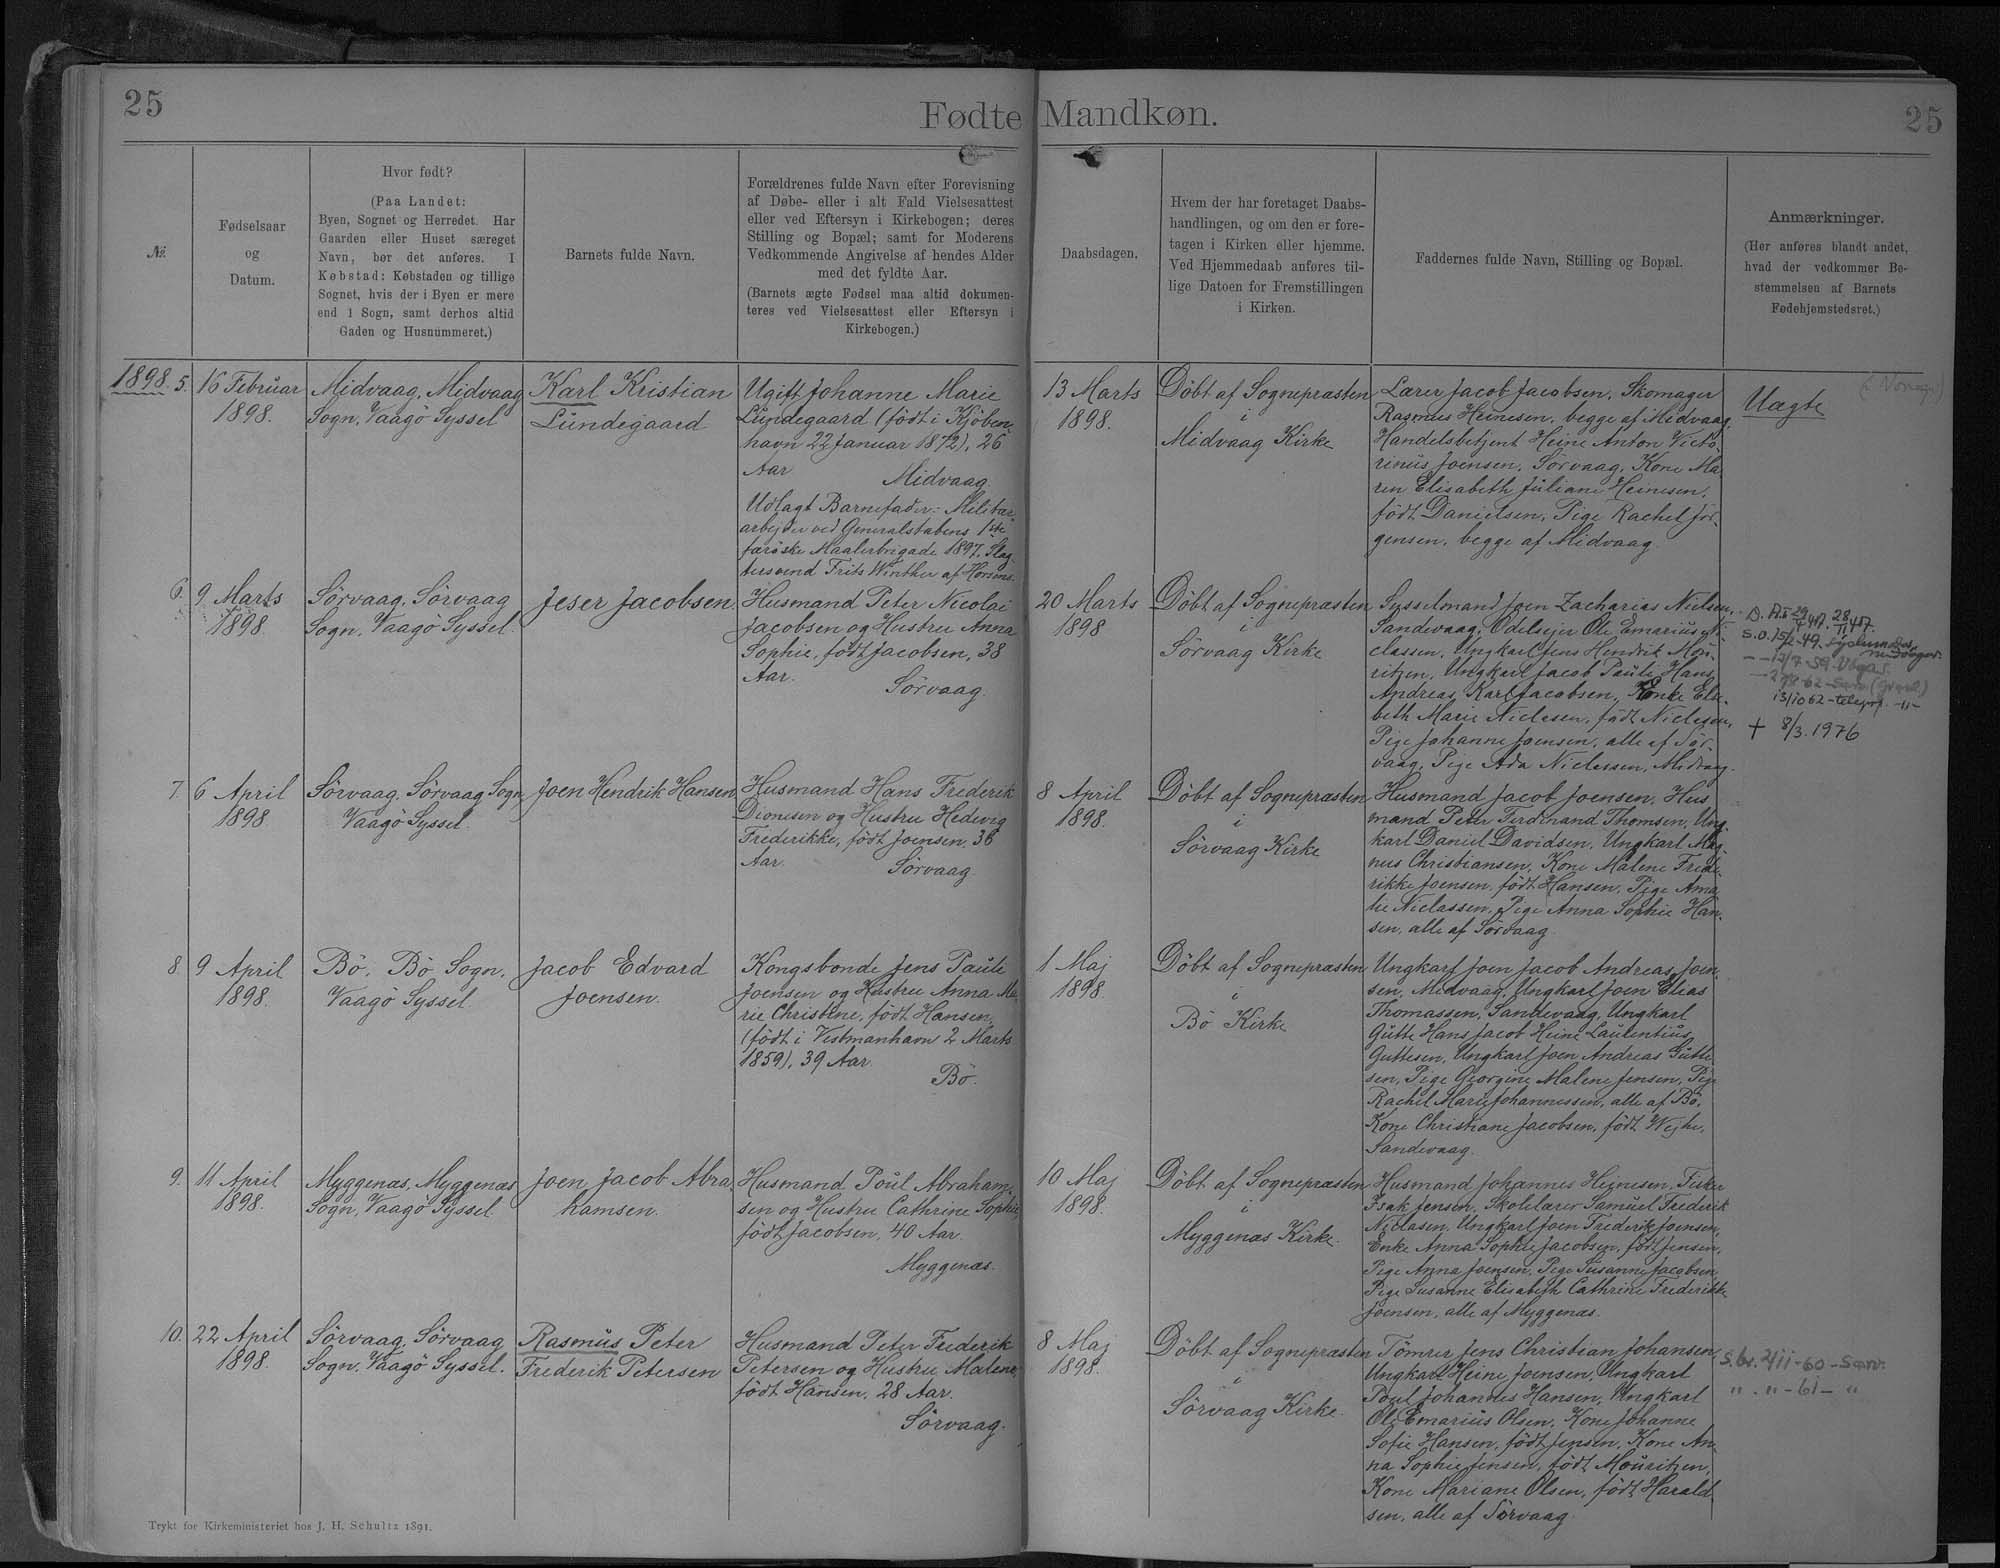 25
Fødte Mandkøn.
25
№.
Fødselsaar
og
Datum.
Hvor født?
(Paa Landet:
Byen, Sognet og Herredet. Har
Gaarden eller Huset særeget
Navn, bør det anføres. I
Købstad: Købstaden og tillige
Sognet, hvis der i Byen er mere
end 1 Sogn, samt derhos altid
Gaden og Husnummeret.)
Barnets fulde Navn.
Forældrenes fulde Navn efter Forevisning
af Døbe- eller i alt Fald Vielsesattest
eller ved Eftersyn i Kirkebogen; deres
Stilling og Bopæl; samt for Moderens
Vedkommende Angivelse af hendes Alder
med det fyldte Aar.
(Barnets ægte Fødsel maa altid dokumen-
teres ved Vielsesattest eller Eftersyn i
Kirkebogen.)
Daabsdagen.
Hvem der har foretaget Daabs-
handlingen, og om den er fore-
tagen i Kirken eller hjemme.
Ved Hjemmedaab anføres til-
lige Datoen for Fremstillingen
i Kirken.
Faddernes fulde Navn, Stilling og Bopæl.
Anmærkninger.
(Her anføres blandt andet,
hvad der vedkommer Be-
stemmelsen af Barnets
Fødehjemstedsret.)
1898. 5.
16 Februar
1898.
Midvaag, Midvaag
Sogn, Vaagö Syssel
Karl Kristian
Lundegaard
Ugift Johanne Marie
Lundegaard (født i Kjöben-
havn 22 Januar 1872), 26
Aar
Midvaag.
Udlagt Barnefader: Militær
arbejder ved Generalstabens 1ste
færöske Maalerbrigade 1897, Slag
tersvend Frits Winther af Horsens.
13 Marts
1898.
Döbt af Sognepræsten
i
Midvaag Kirke
Lærer Jacob Jacobsen, Skomager
Rasmus Heinesen, begge af Midvaag,
Handelsbetjent Heine Anton Victo-
rinus Joensen, Sörvaag, Kone Ma
ren Elisabeth Juliane Heinesen,
födt Danielsen, Pige Rachel Jör-
gensen, begge af Midvaag.
Uægte
6.
9 Marts
1898.
Sörvaag, Sörvaag
Sogn, Vaagö Syssel.
Jeser Jacobsen.
Husmand Peter Nicolai
Jacobsen og Hustru Anna
Sophie, født Jacobsen, 38
Aar.
Sörvaag.
20 Marts
1898
Döbt af Sognepræsten
i
Sörvaag Kirke
Sysselmand Joen Zacharias Nielsen,
Sandevaag, Odelsejer Ole Emarius Ni-
classen, Ungkarl Jens Hendrik Mou-
ritzen, Ungkarl Jacob Pauli Hans
Andreas Karl Jacobsen, Konke Elsa-
beth Marie Niclesen, født Niclesen,
Pige Johanne Joensen, alle af Sör-
vaag, Pige Ada Niclessen, Midvaag.
13/10 62 - telegrf. -"-
+ 8/3. 1976
7.
6 April
1898
Sörvaag, Sörvaag Sogn,
Vaagö Syssel.
Joen Hendrik Hansen
Husmand Hans Frederik
Dionesen og Hustru Hedevig
Frederikke, født Joensen, 36
Aar.
Sörvaag.
8 April
1898.
Döbt af Sognepræsten
i
Sörvaag Kirke
Husmand Jacob Joensen, Hus
mand Peter Ferdinand Thomsen, Ung
karl Daniel Davidsen, Ungkarl Mag
nus Christiansen, Kone Malene Frede-
rikke Joensen, født Hansen, Pige Ama
lie Niclassen, Pige Anna Sophie Han-
sen, alle af Sörvaag.
8.
9 April
1898.
Bö, Bö Sogn,
Vaagö Syssel
Jacob Edvard
Joensen.
Kongsbonde Jens Pauli
Joensen og Hustru Anna Ma
rie Christine, født Hansen,
(født i Vestmanhavn 2 Marts
1859), 39 Aar.
Bö.
1 Maj
1898.
Döbt af Sognepræsten
i
Bö Kirke
Ungkarl Joen Jacob Andreas Joen-
sen, Midvaag, Ungkarl Joen Elias
Thomassen, Sandevaag, Ungkarl
Gutte Hans Jacob Heine Laurentius
Guttesen, Ungkarl Joen Andreas Gutte
sen, Pige Georgine Malene Jensen, Pige
Rachel Marie Johannessen, alle af Bö,
Kone Christiane Jacobsen, født Wejhe,
Sandevaag.
9.
11 April
1898.
Myggenæs, Myggenæs
Sogn, Vaagö Syssel
Joen Jacob Abra-
hamsen.
Husmand Poul Abraham-
sen og Hustru Cathrine Sophie,
født Jacobsen, 40 Aar.
Myggenæs.
10 Maj
1898.
Döbt af Sognepræsten
i
Myggenæs Kirke.
Husmand Johannes Heinesen, Fisker
Isak Jensen, Skolelærer Samuel Frederik
Niclasen, Ungkarl Joen Frederik Joensen,
Enke Anna Sophie Jacobsen, født Jensen,
Pige Anna Joensen, Pige Susanne Jacobsen,
Pige Susanne Elisabeth Cathrine Frederikke
Joensen, alle af Myggenæs.
10.
22 April
1898.
Sörvaag, Sörvaag
Sogn, Vaagö Syssel.
Rasmus Peter
Frederik Petersen
Husmand Peter Frederik
Petersen og Hustru Malene,
født Hansen, 28 Aar.
Sörvaag.
8 Maj
1898.
Döbt af Sognepræsten
i
Sörvaag Kirke.
Tömrer Jens Christian Johansen,
Ungkarl Heine Joensen, Ungkarl
Poul Johannes Hansen, Ungkarl
Ole Emarius Olsen, Kone Johanne
Sofie Hansen, født Jensen, Kone An-
na Sophie Jensen, født Mouritzen,
Kone Mariane Olsen, født Harald-
sen, alle af Sörvaag.
S. br. 2/11-60 - Sørv.
" . " - 61 - "
Trykt for Kirkeministeriet hos J. H. Schultz 1891.